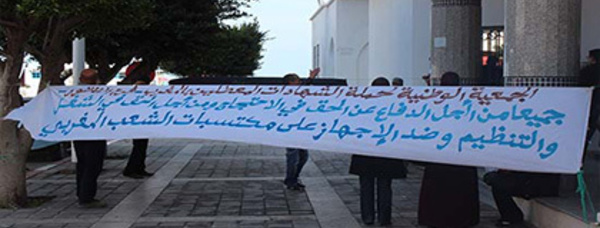 الجمعية الوطنية لحملة الشهادات المعطلين بالمغرب
جميعا من أجل الدفاع عن الحق في الاحتجاج ومن أجل الحق في الشغل
والتنظيم وضد الإجهاز على مكتسبات الشعب المغربي